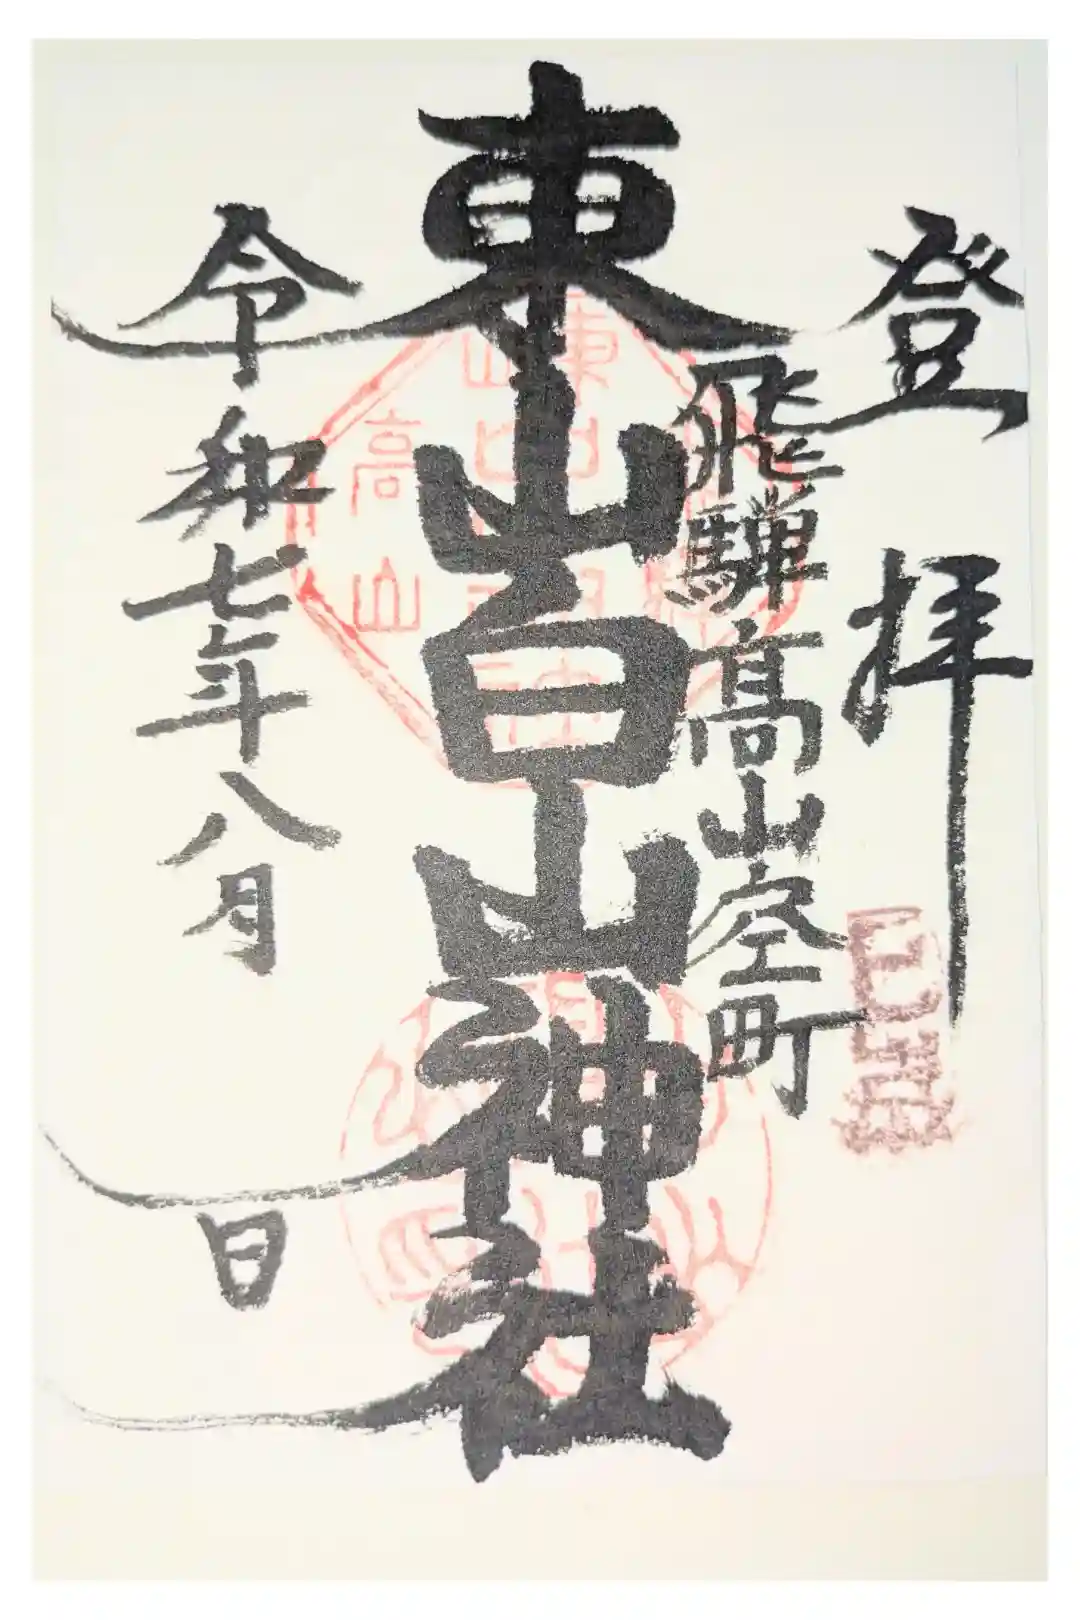 登拝
飛騨高山空町
東山白山神社
令和七年八月 日
高山